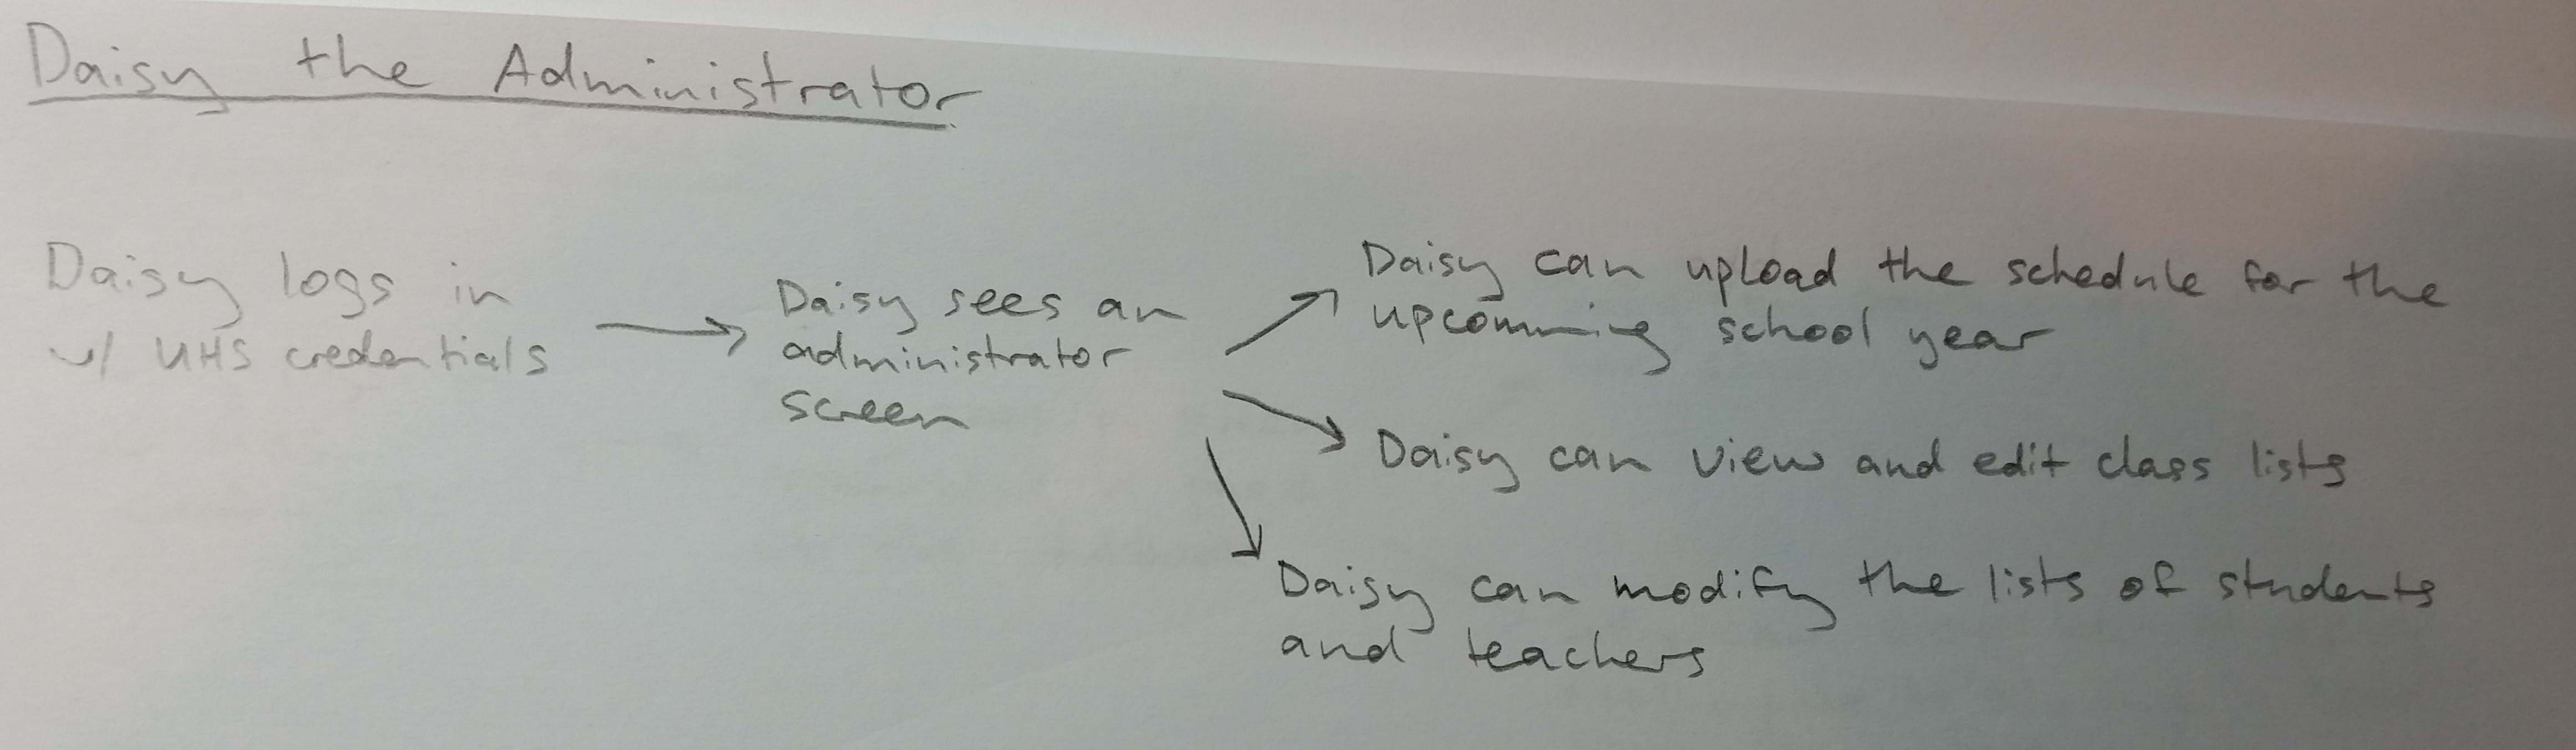 Daisy the Administrator
Daisy logs in
w/ UHS credentials
Daisy sees an
administrator
screen
Daisy can upload the schedule for the
upcomming school year
Daisy can view and edit class lists
Daisy can modify the lists of students
and teachers